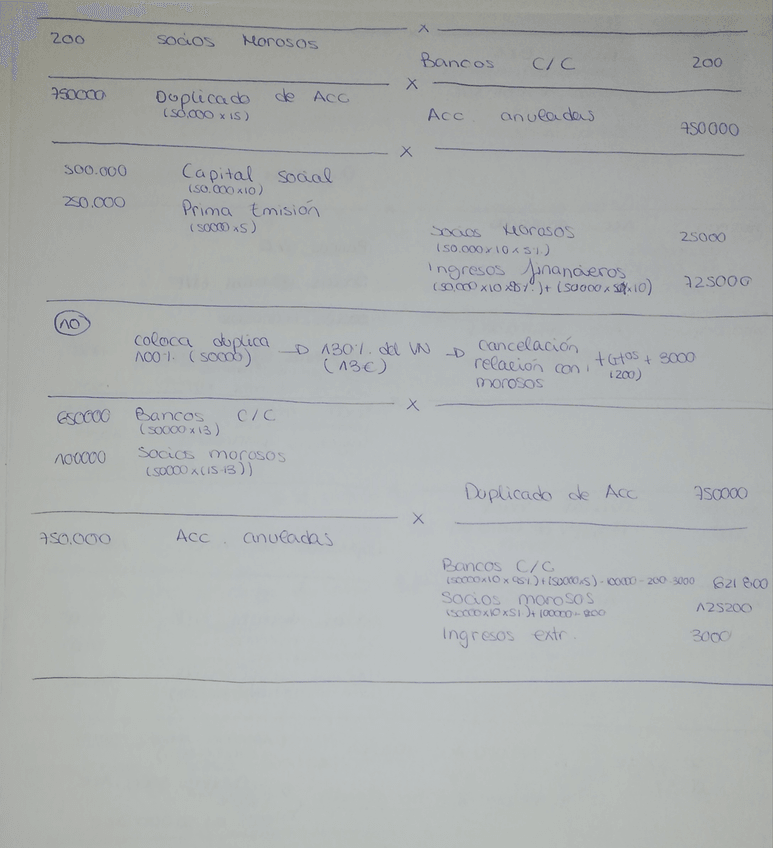 x
200 Socios Morosos
Bancos C/C 200
x
750000 Duplicado de Acc
(50.000 x 15)
Acc. anuladas 750000
x
500.000 Capital social
(50.000 x 10)
250.000 Prima Emisión
(50000 x 5)
Socios Morosos 25000
(50.000 x 10 x 5%)
Ingresos financieros 725000
10
coloca duplica → 130% del VN → cancelación + Gtos + 3000
100% (50000) (13€) relación con (200)
morosos
x
650000 Bancos C/C
(50000 x 13)
100000 Socios morosos
(50000 x (15-13))
Duplicado de Acc 750000
x
750.000 Acc. anuladas
Bancos C/C
(50000 x 10 x 95%) + (50000 x 5) - 100000 - 200 - 3000 621800
Socios morosos 125200
(50000 x 10 x 5%) + 100000 + 200
Ingresos extr. 3000